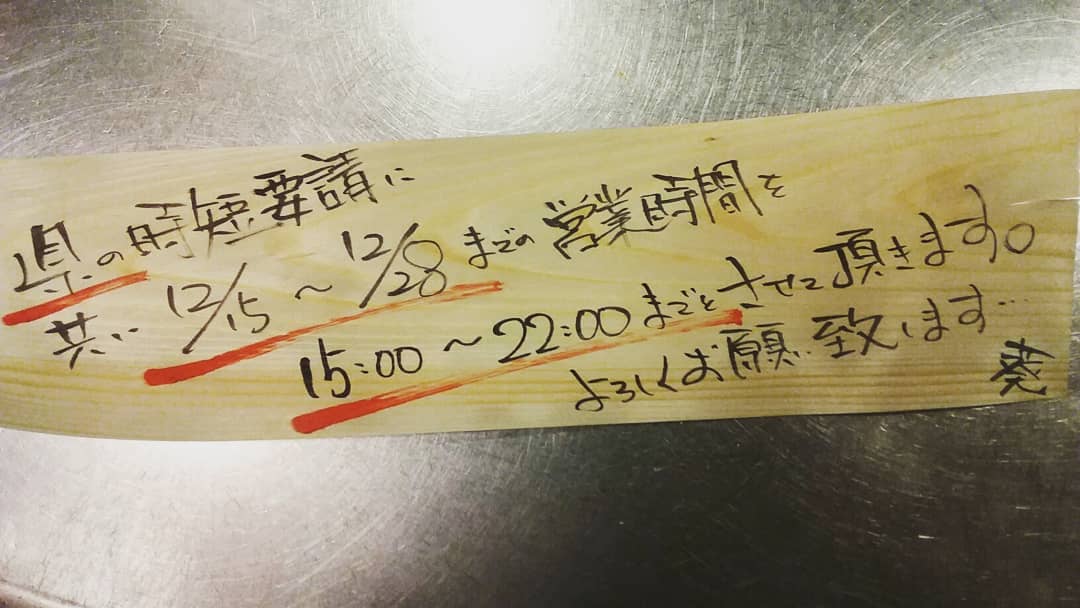 県の時短要請に
共い 12/15～12/28までの営業時間を
15:00～22:00までとさせて頂きます。
よろしくお願い致します…
葵